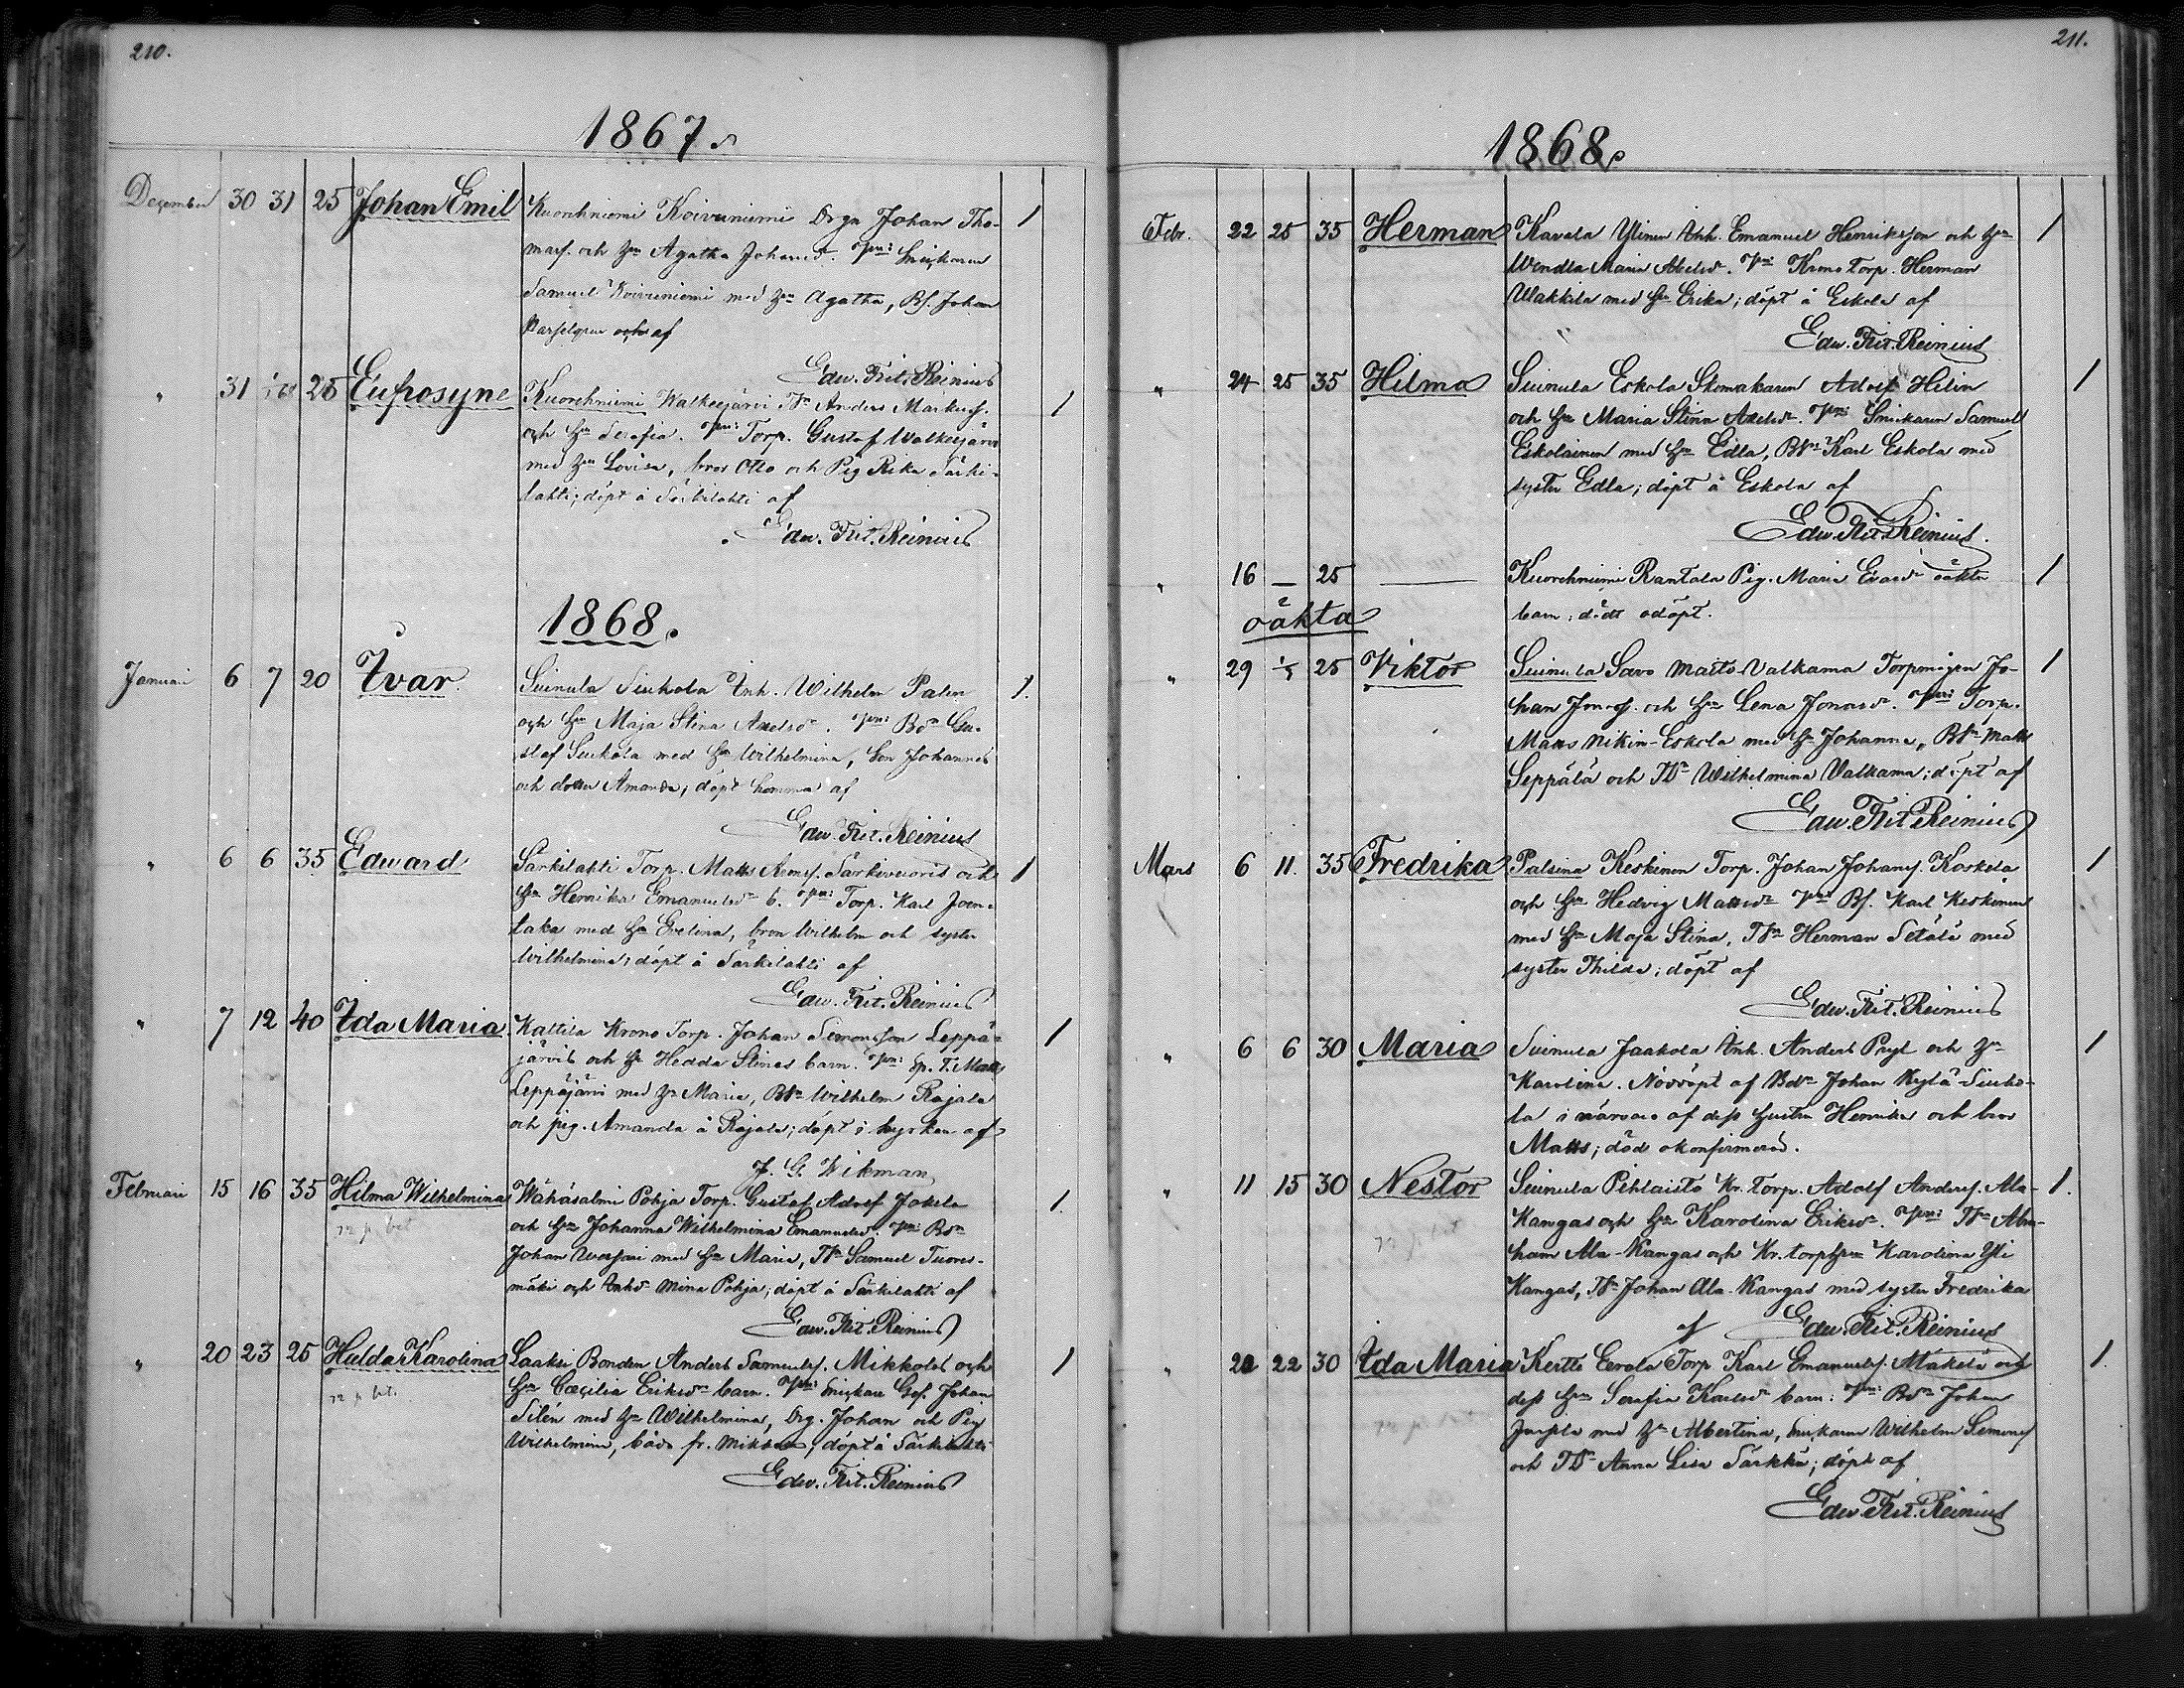 210.
1867.
December 30 31 25 Johan Emil Kuorehniemi Koivuniemi Drgn Johan Tho-
mass. och Hu Agatha Johansd. Vni: Snickaren
Samuel Koivuniemi med Hu Agatha, Bs. Johan
och af
Edw. Frit. Reinius
" 31 1/1 68 25 Eufrosyne Kuorehniemi Walkeejärvi Anders Markuss.
och Hu Serafia. Vni: Torp. Gustaf Walkeejärvi
med Hu Lovisa, bror Otto och Pig. Rika Särki-
lahti; döpt å Särkilahti af
Edw. Frit. Reinius
1868.
Januari 6 7 20 Ivar Suinula Siukola Inh. Wilhelm Palin 1.
och Hu Maja Stina Axelsdr. Vni: Bdn Gu-
staf Siukola med Hu Wilhelmina, Son Johannes
och dotter Amanda; döpt hemma af
Edw. Frit. Reinius
" 6 6 35 Edward Särkilahti Torp. Matts Särkivuoris och 1
Hu Henrika Emanuelsdr b. Vni: Torp. Karl Joen-
laka med Hu Evelina, bror Wilhelm och syster
Wilhelmina; döpt å Särkilahti af
Edw. Frit. Reinius
" 7 12 40 Ida Maria Kaltila Krono Torp. Johan Simonsson Leppä- 1
järvis och Hu Hedda Stinas barn. Vni: Matts
Leppäjärvi med Hu Maria, Wilhelm Rajala
och pig. Amanda å Rajala; döpt i kyrkan af
J. G. Wikman
Februari 15 16 35 Hilma Wilhelmina Wähäsalmi Pohja Torp. Gustaf Adolf Jokela 1.
och Hu Johanna Wilhelmina Emanuelsd. Vni: Bdn
Johan med Hu Maria, Samuel Tuores-
mäki och Mina Pohja; döpt å Särkilahti af
Edw. Frit. Reinius
" 20 23 25 Hulda Karolina Laakso Bonden Anders Samuelss. Mikkolas och 1
Hu Cæcilia Eriksdr barn. Vni: Snickare Johan
Silén med Hu Wilhelmina, Drg. Johan och Pig
Wilhelmina, båda fr. Mikkola; döpt å Särkilahti
Edw. Frit. Reinius
211.
1868.
Febr. 22 25 35 Herman Kavala Ylinen Inh. Emanuel Henriksson och Hu 1
Wendla Maria Axelsdr. Vni: Krono Torp. Herman
Wakkila med Hu Erika; döpt å Eskola af
Edw. Frit. Reinius
" 24 25 35 Hilma Suinula Eskola Skomakaren Adolf Helin 1
och Hu Maria Stina Axelsdr. Vni: Snickaren Samuel
Eskolainen med Hu Edla, Karl Eskola med
syster Edla; döpt å Eskola af
Edw. Frit. Reinius.
" 16 — 25 — Kuorehniemi Rantala Pig. Maria oäkta 1
oäkta barn; dödt odöpt.
" 29 1/3 25 Viktor Suinula Savo Matts-Valkama Torpmågen Jo- 1
han och Hu Lena Jonasdr. Vni: Torp.
Matts Nikin-Eskola med Hu Johanna, Matts
Seppälä och Wilhelmina Valkama; döpt af
Edw. Frit. Reinius
Mars 6 11. 35 Fredrika Palsina Keskinen Torp. Johan Johanss. Koskela 1
och Hu Hedvig Mattsdr Vni Bs. Karl Keskinen
med Hu Maja Stina, Herman Setälä med
syster Thilda; döpt af
Edw. Frit. Reinius
" 6 6 30 Maria Suinula Jaakola Inh. Anders Pryl och Hu 1
Karolina. Nöddöpt af Bdn Johan Kylä-Siuko-
la i närvaro af dess hustru Henrika och bror
Matts; död okonfirmerad.
" 11 15 30 Nestor Suinula Pihlaisto Kr. torp. Adolf Anderss. Ala- 1.
Kangas och Hu Karolina Eriksdr. Vni: Abra-
ham Ala-Kangas och Kr. Karolina Yli
Kangas, Johan Ala-Kangas med syster Fredrika
af Edw. Frit. Reinius
" 22 30 Ida Maria Kertte Eerola Torp Karl Emanuelss. Mäkelä och 1.
dess Hu Serafia Karlsdr barn: Vni: Bdn Johan
med Hu Albertina, Snickaren Wilhelm Simons
och Anna Lisa Särkkä; döpt af
Edw. Frit. Reinius